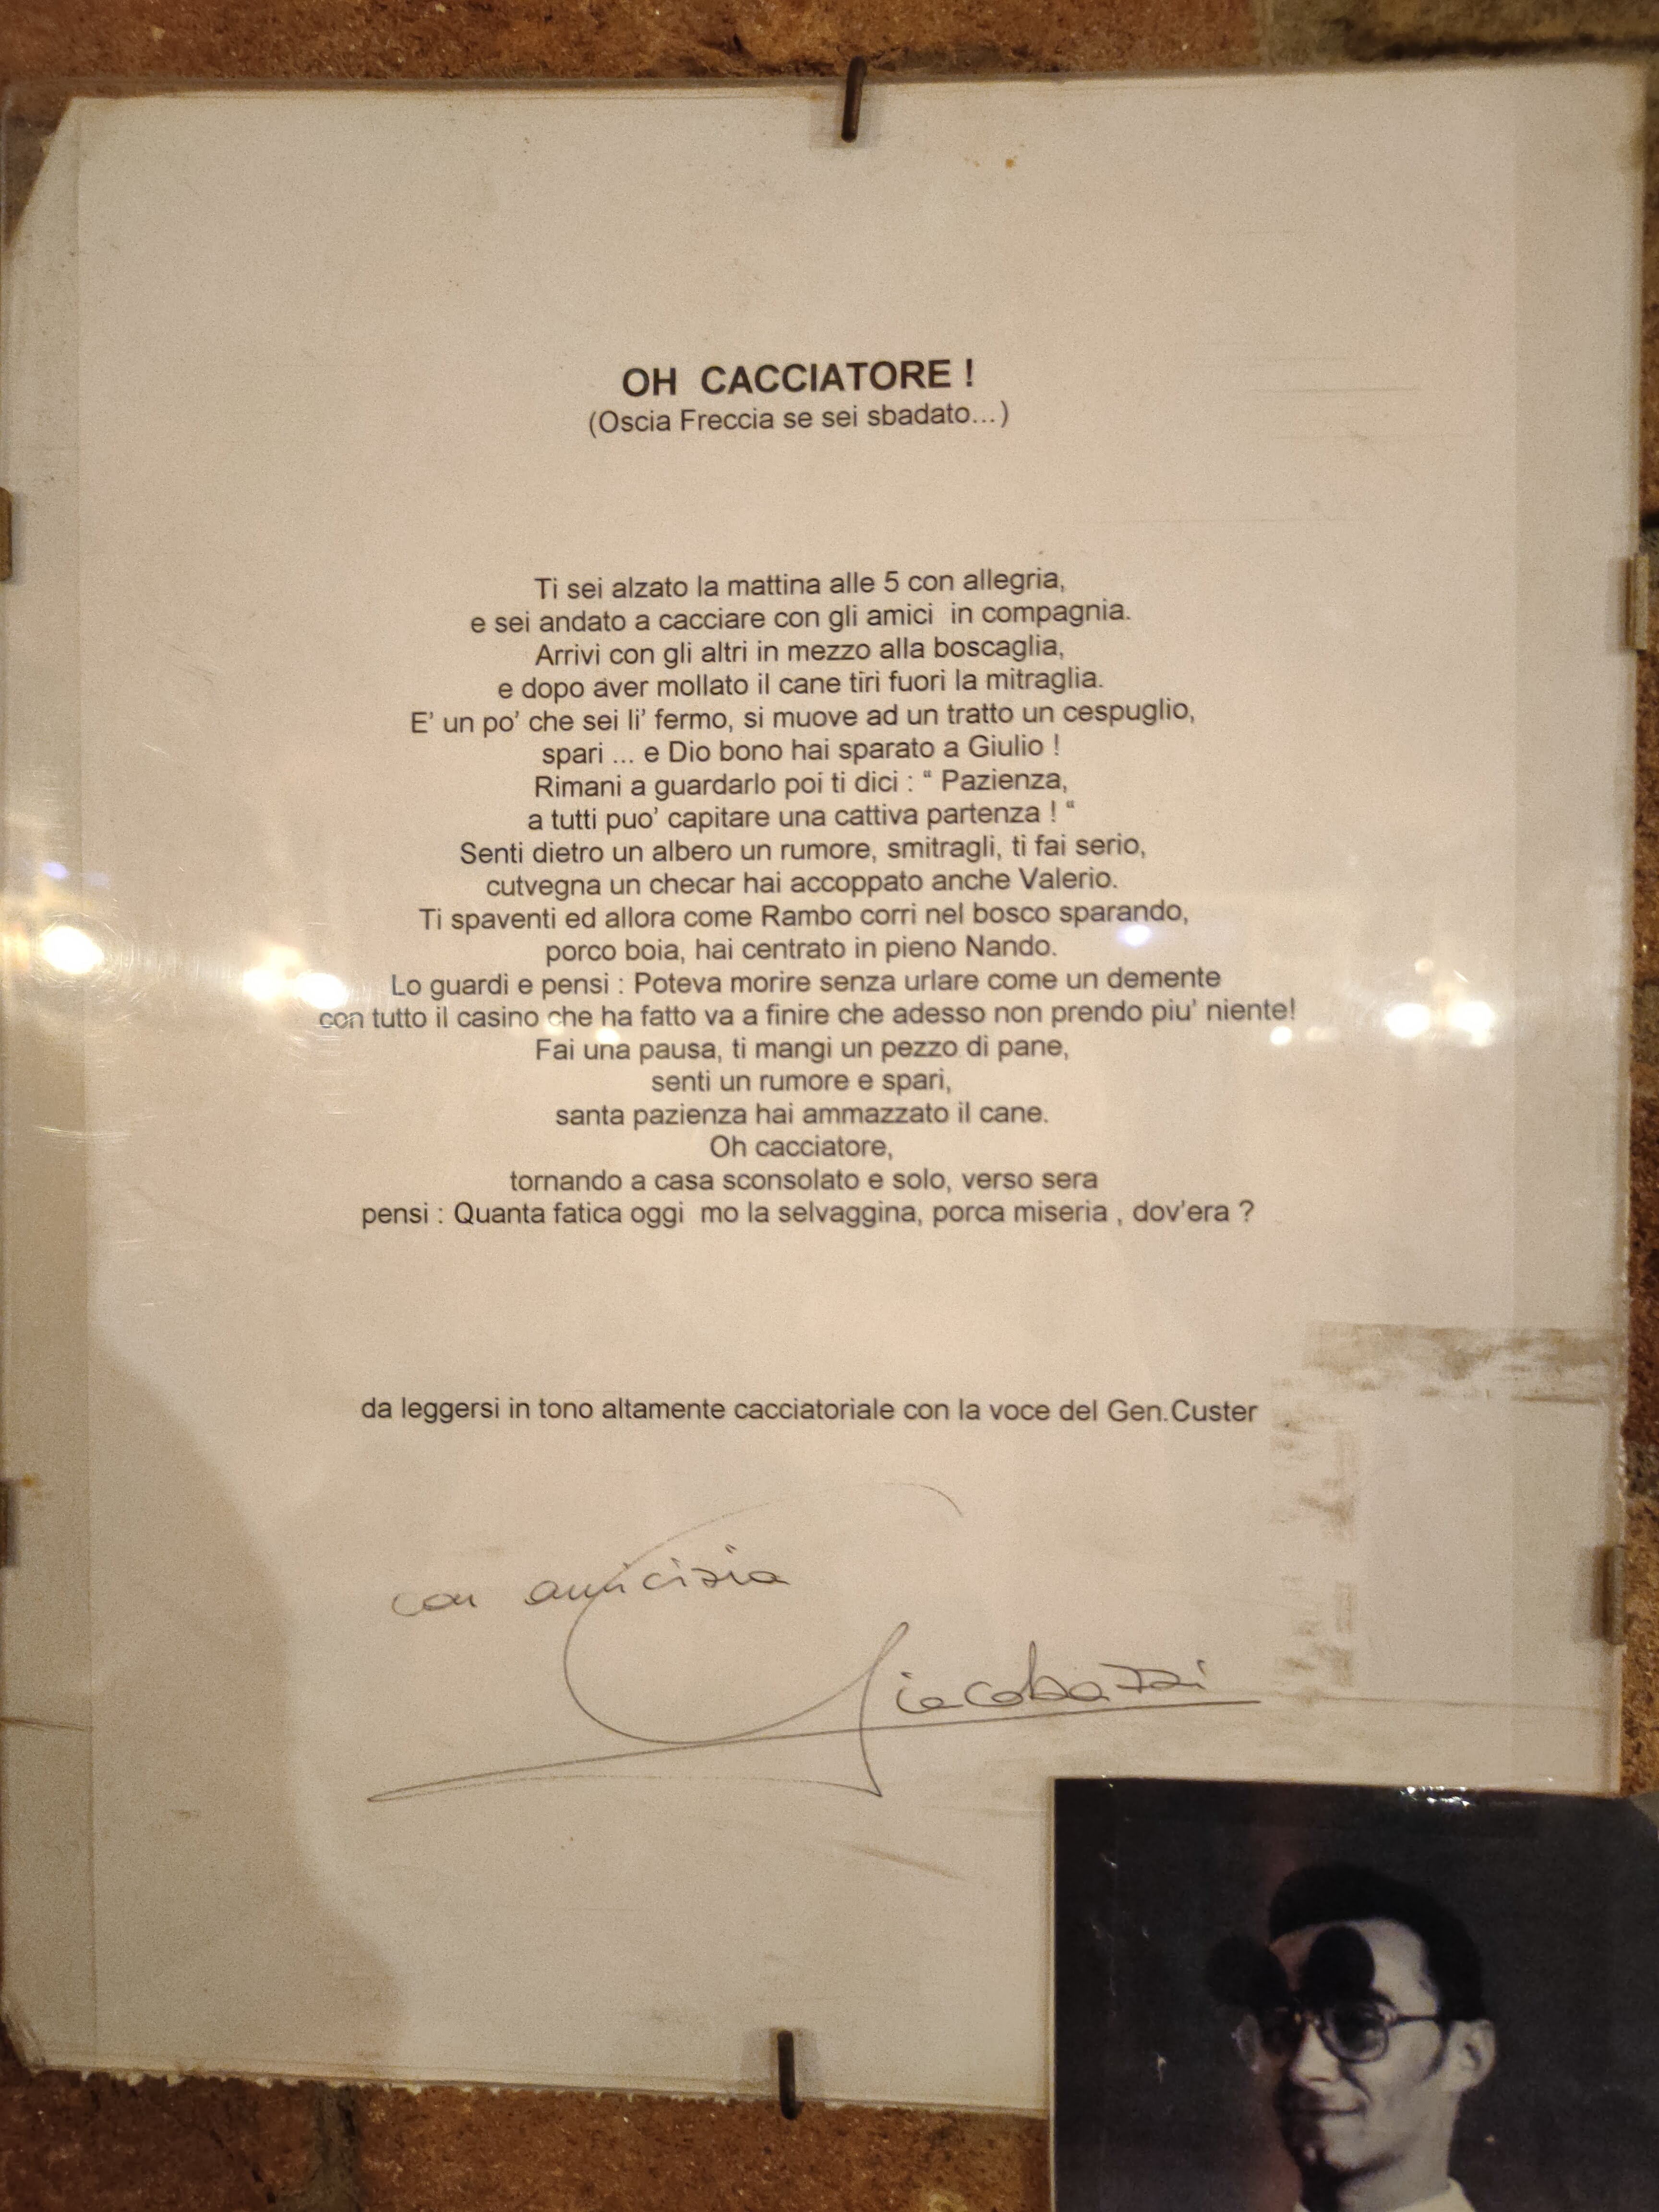 OH CACCIATORE !
(Oscia Freccia se sei sbadato...)
Ti sei alzato la mattina alle 5 con allegria,
e sei andato a cacciare con gli amici in compagnia.
Arrivi con gli altri in mezzo alla boscaglia,
e dopo aver mollato il cane tiri fuori la mitraglia.
E' un po' che sei li' fermo, si muove ad un tratto un cespuglio,
spari ... e Dio bono hai sparato a Giulio !
Rimani a guardarlo poi ti dici : “ Pazienza,
a tutti puo' capitare una cattiva partenza ! “
Senti dietro un albero un rumore, smitragli, ti fai serio,
cutvegna un checar hai accoppato anche Valerio.
Ti spaventi ed allora come Rambo corri nel bosco sparando,
porco boia, hai centrato in pieno Nando.
Lo guardi e pensi : Poteva morire senza urlare come un demente
con tutto il casino che ha fatto va a finire che adesso non prendo piu' niente!
Fai una pausa, ti mangi un pezzo di pane,
senti un rumore e spari,
santa pazienza hai ammazzato il cane.
Oh cacciatore,
tornando a casa sconsolato e solo, verso sera
pensi : Quanta fatica oggi mo la selvaggina, porca miseria , dov'era ?
da leggersi in tono altamente cacciatoriale con la voce del Gen.Custer
con amicizia
Giacobazzi